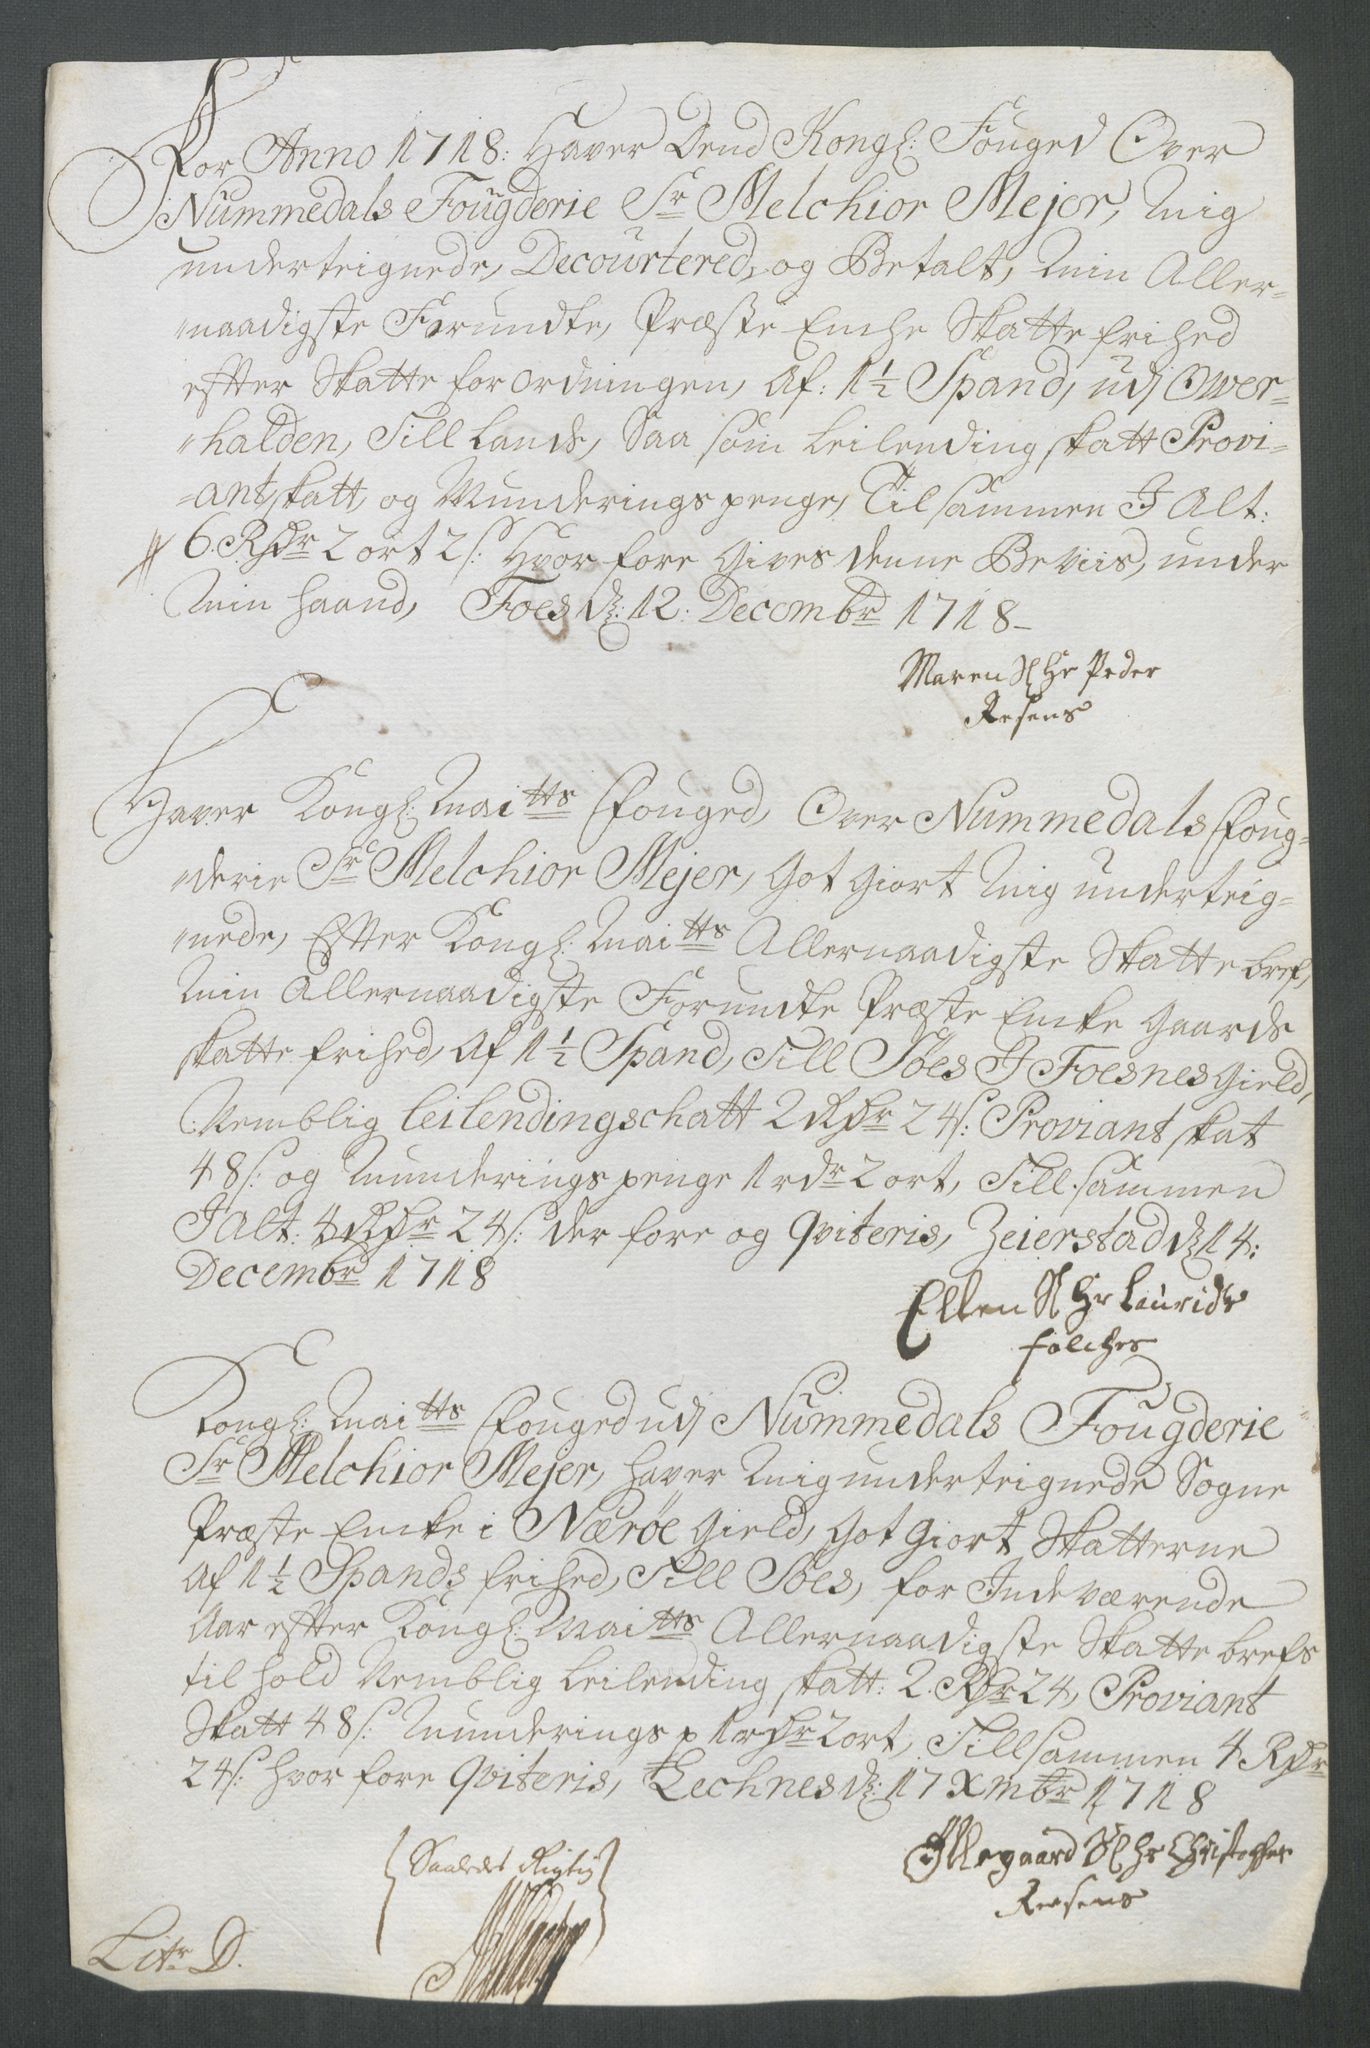 For Anno 1718: Haver Dend Kongl: Fouged Over
Nummedals Fougderie Sr Melchior Mejer, mig
underteignede, Decourtered, og Betalt, min Aller-
naadigste Forundte, Præste Enche Skatte frihed
efter Skatte forordningen, Af: 1½ Spand, udj Over-
halden, Till Lands, Saa som Leilending skatt Provi-
ant skatt, og Munderings penge, Tilsammen J Alt:
6. Rdr 2 ort 2 s: Hvor fore Gives denne Beviis, under
min haand, Foes d: 12: Decembr 1718-
Maren Sl Hr Peder
Resens
Haver Kongl: Maitts Fouged Over Nummedals Foug-
derie Sr Melchior Mejer, Got Giort mig underteig-
nede, Efter Kongl: Maitts Allernaadigste Skatte bref,
min Allernaadigste Forundte Præste Encke Gaards
skatte frihed, Af 1½ Spand, Till Söes J Foesnes Gield,
Nemblig Leilendingschatt 2 Rdr 24 s: Proviant skat
48 s: og munderings penge 1 rdr 2 ort, Till sammen
J Alt: 4 Rdr 24 s: der fore og Qviteris, Zeierstad d 14:
Decembr 1718
Ellen Sl Hr Laurids
falches
Kongl: Maitts Fouged udj Nummedals Fougderie
Sr Melchior Mejer, haver mig underteignede Sogne
Præste Encke i Nærøe Gield, Got Giort Skatterne
Af 1½ Spands frihed, Till Söes, for Jndeværende
Aar efter Kongl: Maitts Allernaadigste Skatte brefs
til hold Nemblig Leilending skatt: 2. Rdr 24, Proviant
Skatt 48 s: Munderings p 1 rdr 2 ort, Tillsammen 4 Rdr
24 s: hvor fore Qviteris, Lechnes d: 17 Xmbr 1718
Jllegaard Sl Hr Christopher
Resens
Saaledes Rigtig
Litr D.